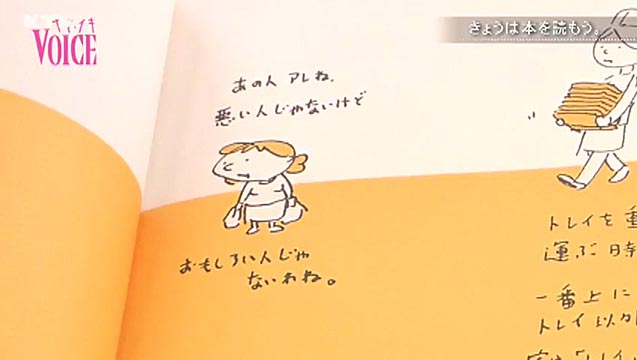 VOICE
きょうは本を読もう。
あの人 アレね、
悪い人じゃないけど
おもしろい人じゃ
ないわね。
トレイを重
運ぶ時
一番上に
トレイ以外